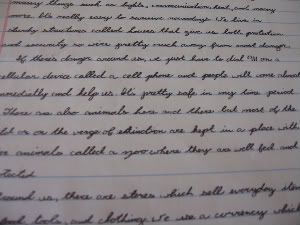 things such as lights, communication, heat, and many
more. It's really easy to survive nowadays. We live in
sturdy structures called houses that give us both protection
and security so were pretty much away from most danger.
If there's danger around us, we just have to dial 911 on a
cellular device called a cell phone and people will come almost
immediatly and help us. It's pretty safe in my time period.
There are also animals here and there but most of the
that are on the verge of extinction are kept in a place with
animals called a zoo where they are well fed and
Around us, there are stores which sell everyday items
food, tools, and clothing. We use a currency which